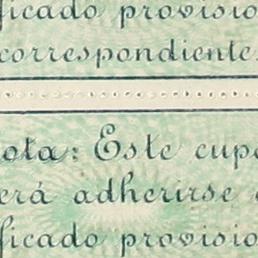 ficado provisio
correspondiente.
ota: Este cupo
erá adherirse
ficado provisio